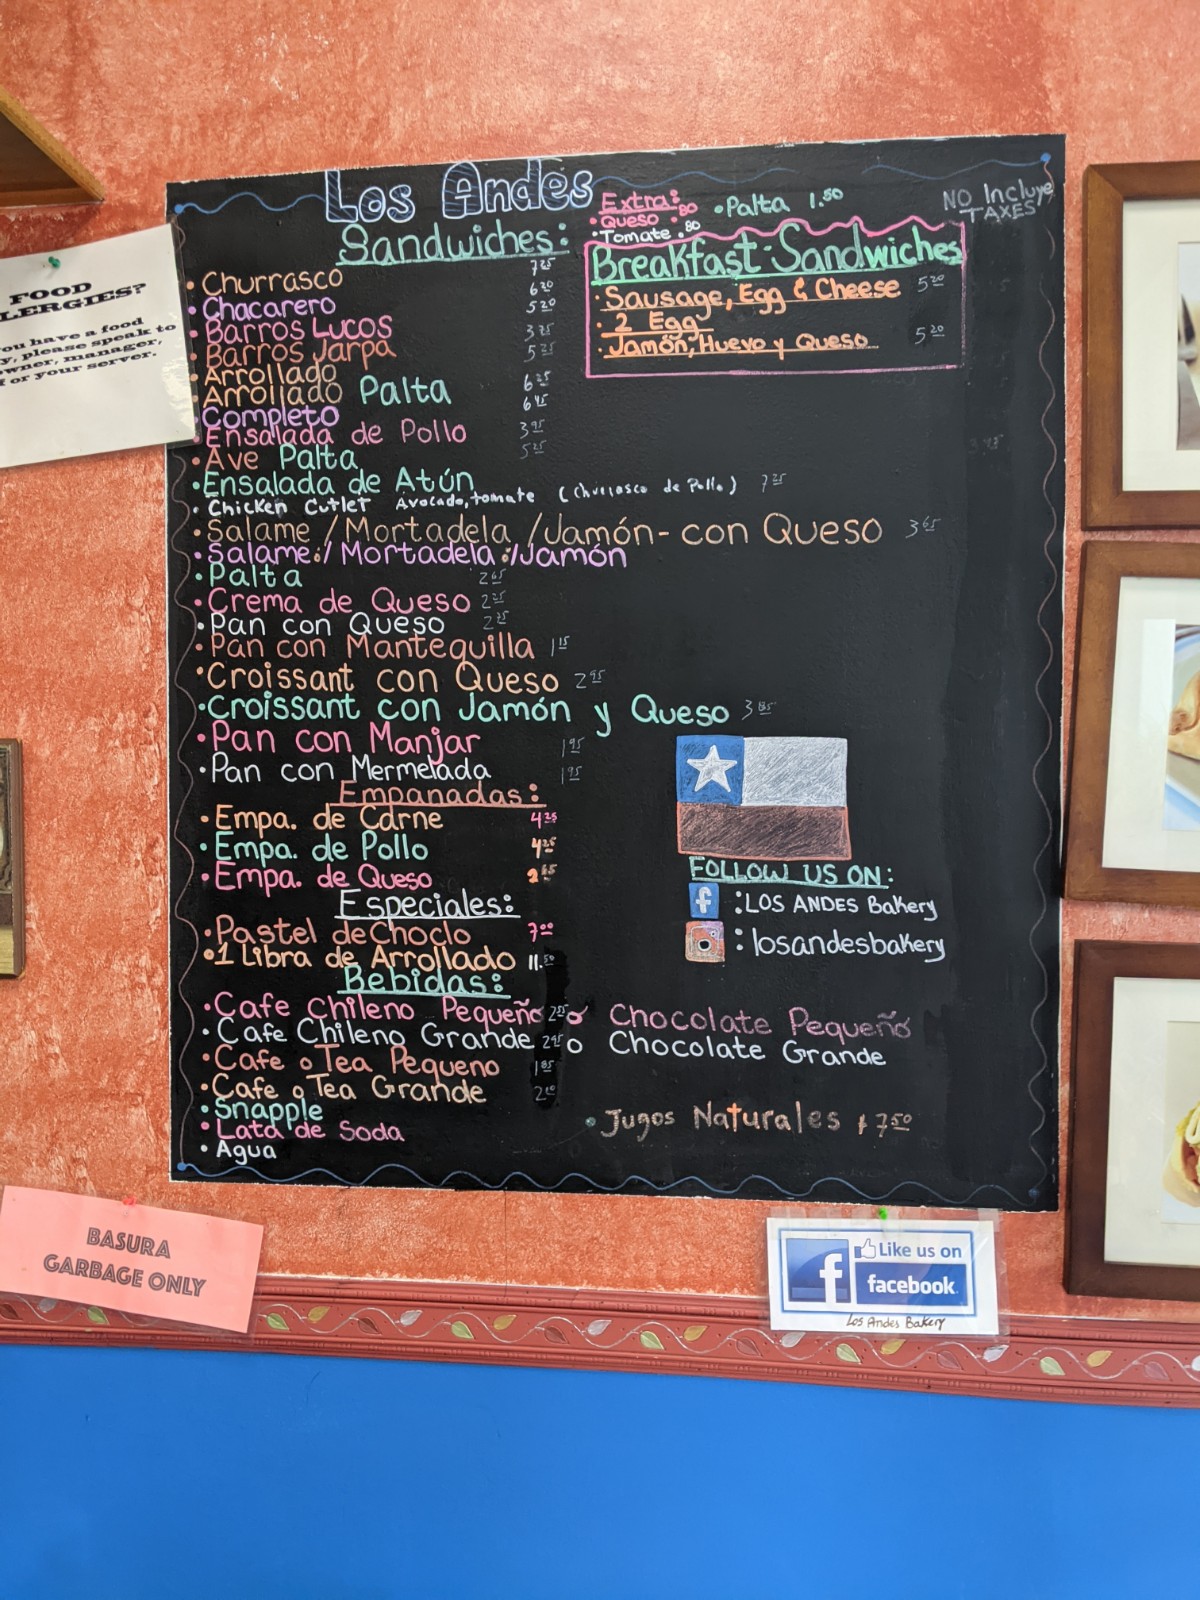 Los Andes
Extra:
• Queso .80
• Tomate .80
• Palta 1.50
NO Incluye
TAXES
Sandwiches:
• Churrasco 7.25
• Chacarero 6.20
• Barros Lucos 5.20
• Barros Jarpa 3.75
• Arrollado 5.25
• Arrollado Palta 6.25
• Completo 6.45
• Ensalada de Pollo 3.95
• Ave Palta 5.25
• Ensalada de Atún
• Chicken Cutlet Avocado, tomate (Churrasco de Pollo) 7.25
• Salame / Mortadela / Jamón - con Queso 3.65
• Salame / Mortadela / Jamón
• Palta 2.65
• Crema de Queso 2.25
• Pan con Queso 2.75
• Pan con Mantequilla 1.15
• Croissant con Queso 2.95
• Croissant con Jamón y Queso 3.85
• Pan con Manjar 1.95
• Pan con Mermelada 1.95
Breakfast Sandwiches
• Sausage, Egg & Cheese 5.20
• 2 Egg
• Jamón, Huevo y Queso 5.20
Empanadas:
• Empa. de Carne 4.25
• Empa. de Pollo 4.25
• Empa. de Queso
Especiales:
• Pastel de Choclo 7.00
• 1 Libra de Arrollado 11.50
Bebidas:
• Cafe Chileno Pequeño 2.85 o Chocolate Pequeño
• Cafe Chileno Grande 2.95 o Chocolate Grande
• Cafe o Tea Pequeno 1.85
• Cafe o Tea Grande
• Snapple
• Lata de Soda
• Agua
• Jugos Naturales $7.50
FOLLOW US ON:
f : LOS ANDES Bakery
: losandesbakery
FOOD
LERGIES?
ou have a food
y, please speak to
owner, manager,
f or your server.
BASURA
GARBAGE ONLY
f Like us on
facebook
Los Andes Bakery